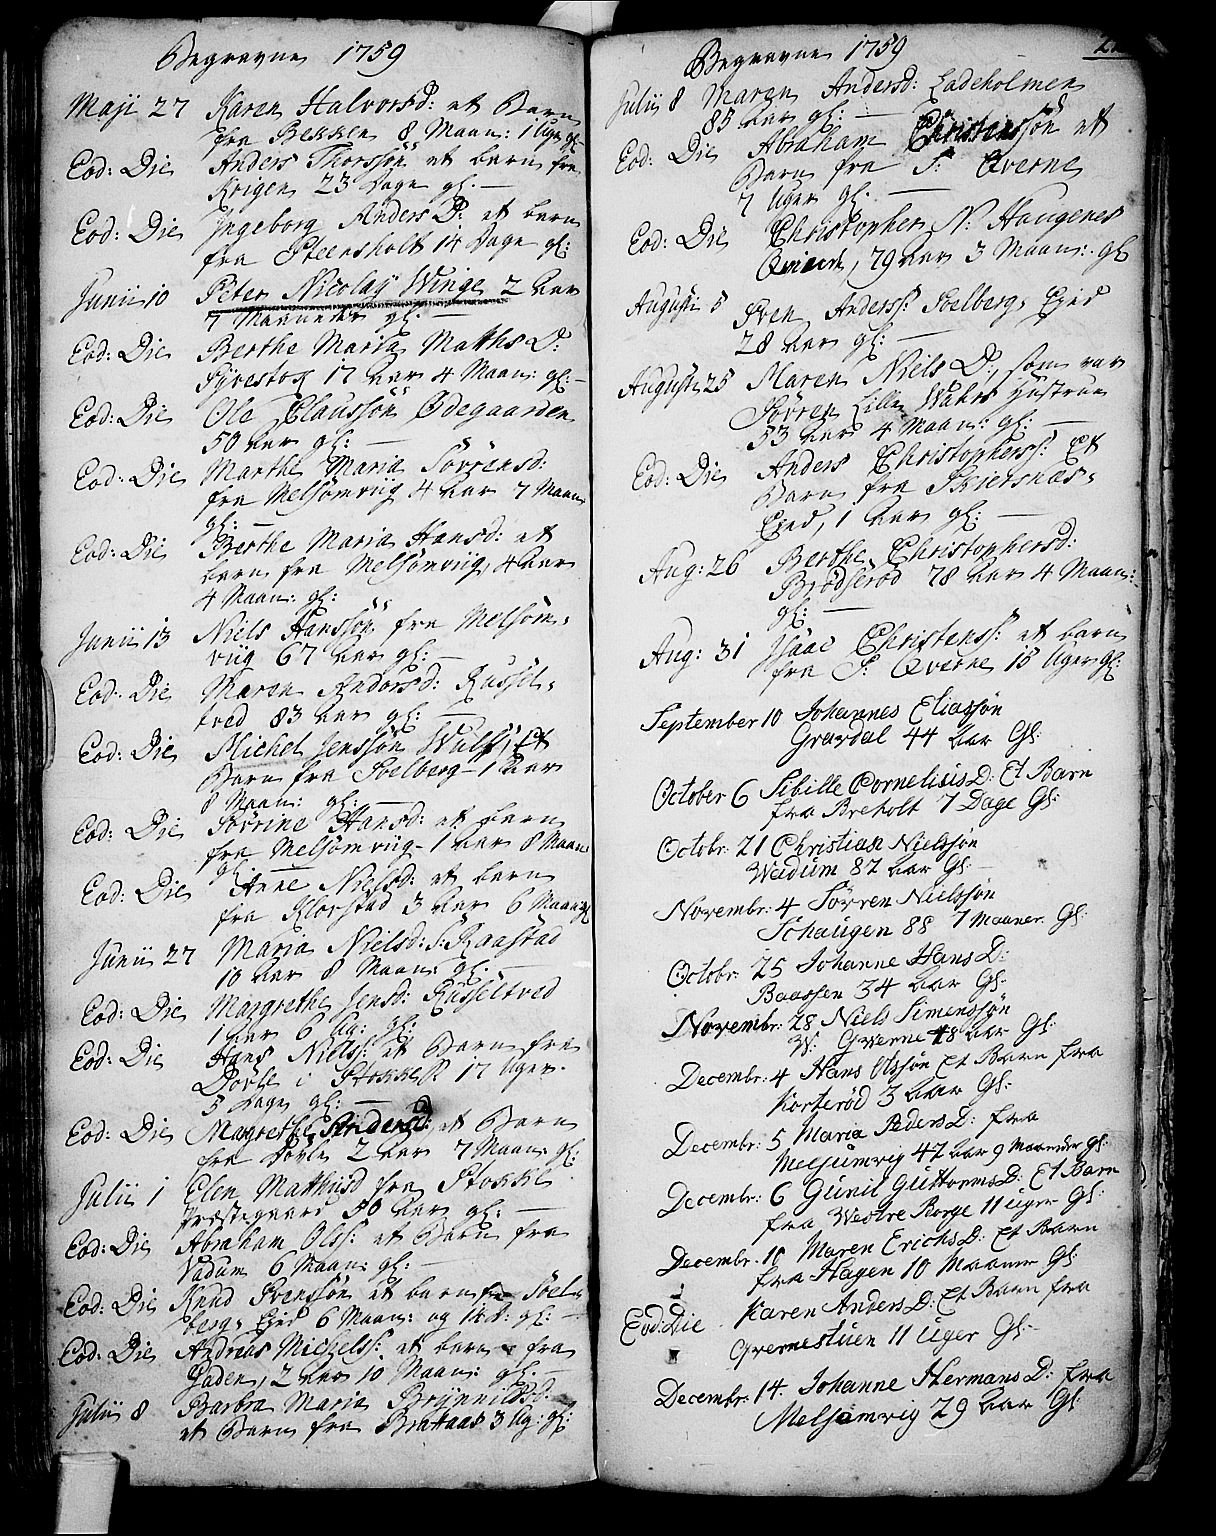 Begravne 1759
Maji 27 Karen Halvorsd: et Barn
fra Bekken 8 Maan: 1 Uge gl:
Eod: Die Anders Thorssøn et barn fra
Krigen 23 Dage gl:
Eod: Die Ingeborg Anders D: et barn
fra Steensholt 14 Dage gl:
Junii 10 Peter Nicolaÿ Winge 2 Aar
7 Maaneder gl:
Eod: Die Berthe Maria Matths D:
17 Aar 4 Maan: gl:
Eod: Die Ole Claussøn Ødegaarden
50 Aar gl:
Eod: Die Marthe Maria Sørrensd:
fra Melsomvug 4 Aar 7 Maan:
gl:
Eod: Die Berthe Maria Hansd: et
barn fra Melsomvug, 4 Aar
4 Maan: gl:
Junii 13 Niels Hanssøn fra Melsom-
vug 67 Aar gl:
Eod: Die Maren Andersd: Russel-
tved 83 Aar gl:
Eod: Die Michel Jenssøn Wulf, Et
Barn fra Soelberg 1 Aar
8 Maan: gl:
Eod: Die Sørrine Hansd: et barn
fra Melsomvug 1 Aar 8 Maan:
gl:
Eod: Die Anne Nielsd: et barn
fra Klovstad 3 Aar 6 Maan gl
Junii 27 Maria Nielsd: S: Raastad
10 Aar 8 Maan: gl:
Eod: Die Margrethe Jensd: Russeltved
1 Aar 6 Ug: gl:
Eod: Die Hans Niels: et Barn fra
Døvle i Stokke P. 17 Uger
5 Dage gl:
Eod: Die Magrethe Andersd: et Barn
fra Døvle 2 Aar 7 Maan: gl:
Julii 1 Elen Matthisd fra Stokke
Præstegaard 50 Aar gl:
Eod: Die Abraham Olss: et Barn fra
Vadum 6 Maan: gl:
Eod: Die Knud Svenssøn et barn fra Soel-
bergs Ejed 6 Maan: og 14 d: gl:
Eod: Die Andreas Michelss: et barn fra
Gaden, 2 Aar 10 Maan: gl:
Julii 8 Barbra Maria
et Barn fra Brataas 3 Ug: gl:
Begravne 1759
Julii 8 Maren Andersd: Ladeholmen
83 Aar gl:
Eod: Die Abraham Christenssøn et
Barn fra S: Qverne
7 Uger gl:
Eod: Die Christopher N: Haugenes
79 Aar 3 Maan: gl
Augusti 5 Sven Anderss: Soelbergs Ejed
28 Aar gl:
Augusti 25 Maren Niels D:, som var
Sørren Lille Wahrs Hustrue
53 Aar 4 Maan: gl:
Eod: Die Anders Christopherss: Et
Barn fra Skiersnæs-
Ejed, 1 Aar gl:
Aug: 26 Berthe Christophersd:
Brødserød 78 Aar 4 Maan:
gl:
Aug: 31 Isaac Christenss: et barn
fra S: Qverne 15 Uger gl:
September 10 Johannes Eliassøn
Gravdal 44 Aar Gl:
October 6 Sibille Cornelisis D: Et Barn
fra Breholt 7 Dage Gl:
Octobr: 21 Christian Nielssøn
Weidum 82 Aar Gl:
Novembr: 4 Sørren Nielssøn
Schaugen 88 7 Maaner Gl:
Octobr: 25 Johanne Hans D:
Baassen 34 Aar Gl:
Novembr: 28 Niels Simenssøn
W: Qverne 48 Aar Gl:
Decembr: 4 Hans Olssøn Et Barn fra
Korterød 3 Aar Gl:
Decembr: 5 Maria Peders D: fra
Melsumvig 47 Aar 9 Maaneder Gl:
Decembr: 6 Gunil Guttorms D: Et Barn
fra Westre Borge 11 Uger Gl:
Decembr: 10 Maren Erichs D: Et Barn
fra Hagen 10 Maaner Gl:
Eod: Die Karen Anders D: Et Barn fra
Qvernestuen 11 Uger Gl:
Decembr: 14 Johanne Hermans D: fra
Melsomvig 29 Aar Gl: